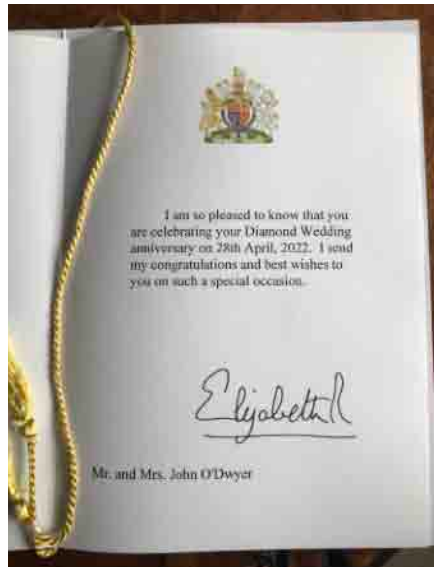 I am so pleased to know that you
are celebrating your Diamond Wedding
anniversary on 28th April, 2022.  I send
my congratulations and best wishes to
you on such a special occasion.
Elizabeth R
Mr. and Mrs. John O'Dwyer